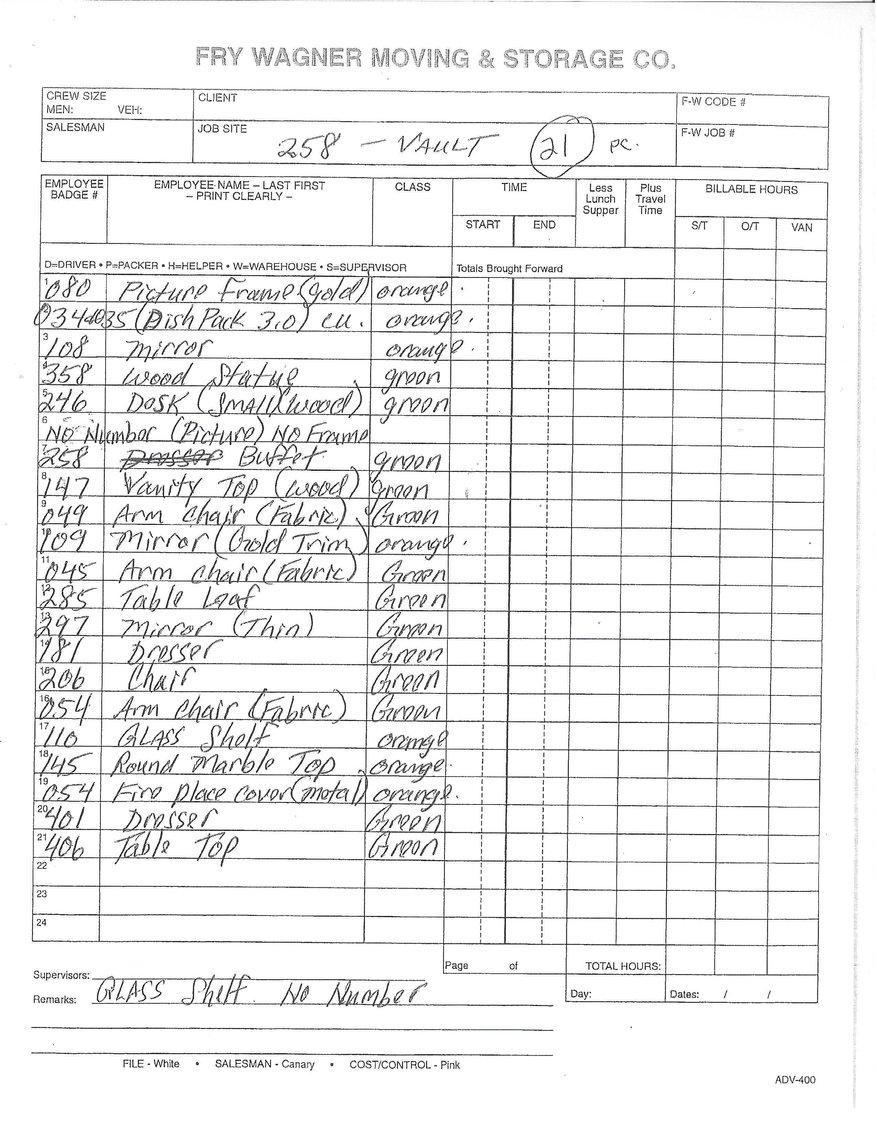 FRY WAGNER MOVING & STORAGE CO.
CREW SIZE
MEN: VEH:
CLIENT
F-W CODE #
SALESMAN
JOB SITE
258 – VAULT 21 pc.
F-W JOB #
EMPLOYEE BADGE #
EMPLOYEE NAME – LAST FIRST
– PRINT CLEARLY –
CLASS
TIME
START END
Less Lunch Supper
Plus Travel Time
BILLABLE HOURS
S/T O/T VAN
D=DRIVER • P=PACKER • H=HELPER • W=WAREHOUSE • S=SUPERVISOR Totals Brought Forward
1 080 Picture Frame (gold) orange
034035 (Dish Pack 3.0) cu. orange
3 108 Mirror orange
4 358 Wood Statue green
5 246 Desk (Small) (wood) green
6 No Number (Picture) No Frame
7 258 Dresser Buffet green
8 147 Vanity Top (wood) green
9 049 Arm Chair (Fabric) Green
10 109 Mirror (Gold Trim) orange
11 045 Arm Chair (Fabric) Green
12 285 Table Leaf Green
13 297 Mirror (Thin) Green
14 181 Dresser Green
15 206 Chair Green
16 054 Arm Chair (Fabric) Green
17 110 GLASS Shelf orange
18 145 Round Marble Top orange
19 054 Fire place cover (metal) orange
20 401 Dresser Green
21 406 Table Top Green
22
23
24
Page of TOTAL HOURS:
Supervisors:
Remarks: GLASS Shelf No Number
Day: Dates: / /
FILE - White • SALESMAN - Canary • COST/CONTROL - Pink
ADV-400